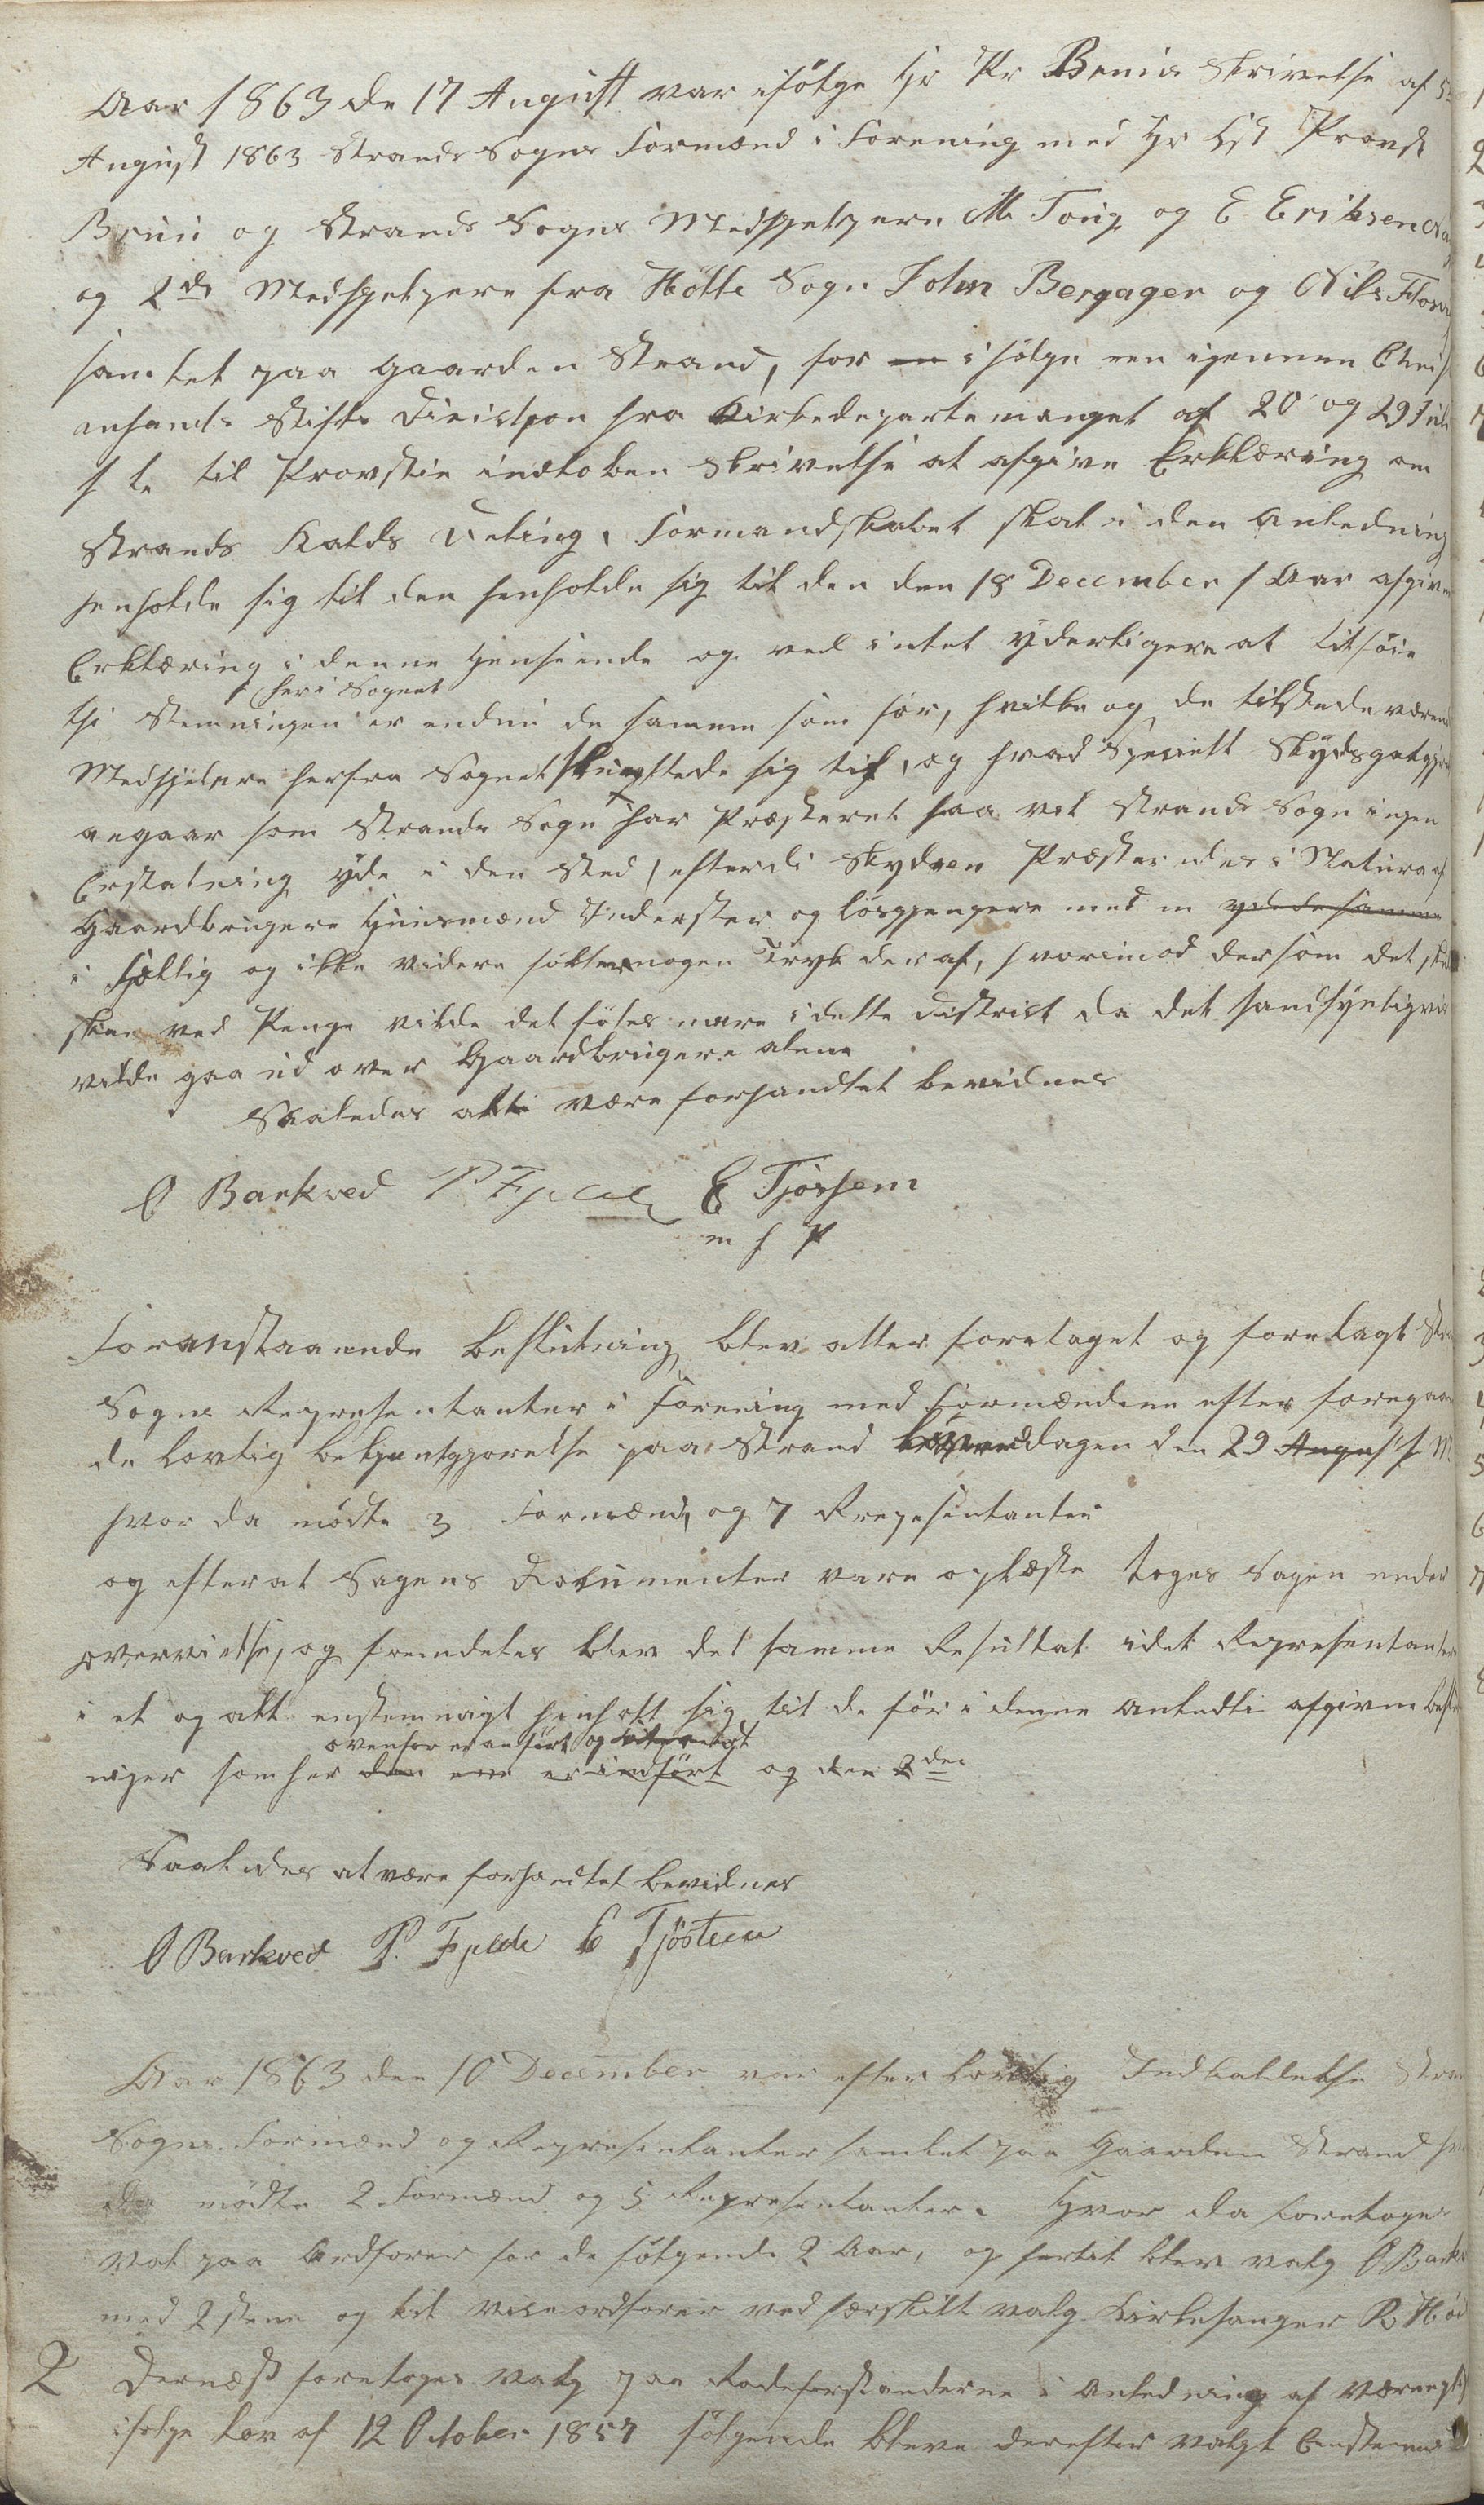 Aar 1863 de 17 August var ifölge Hr Pr Bruns Skrivelse af 5te
August 1863 Strands Sogns Formænd i Forening med Hr Est Provst
Brun og Strands Sogns Medhjelpere M Tou, og E Eriksen
og 2de Medhjelpere fra Hölle Sogn John Bergager og Nils
samlet paa Gaarden Strand, for en ifölge en igjennem Chri
ansands Stifts Direktion fra Kirkedepartemanget af 20 og 29 Juli
f te til Provstie indkoben Skrivelse at afgive Erklæring om
Strands Kalds Deling, Formandskabet skal i den Anledning
henholde sig til den henholde sig til den den 18 December f Aar afgivn
Erklæring i denne Henseende og ved intet yderligere at tilföie
thi Stemningen her i Sognet er endnu de samme som för, hvilke og de tilstedeværend
Medhjelpere herfra Sognet sluttede sig til, og hvad Specielt Skydsgodtgj
angaar som Strands Sogn har Præsteret saa vil Strands Sogn ingen
Erstatning yde i den Sted, efterdi Skydsen Præsteredes i Natura af
Gaardbrugere Huusmænd Inderster og lösgjengere med en yd de samme
i Fjellig og ikke videre föltes nogen Tryk deraf, hvorimod dersom det sk
skee ved Penge vilde det föles mere i dette District da det sandsynligvi
vilde gaa ud over Gaardbrugere alene
Saaledes at være forhandlet bevidnes
O Barkved P Fjelde E Tjöstem
m f P
Foranstaaende Beslutning blev atter foretaget og foredagt Stra
Sogns Representanter i Forening med Formændene efter foregaaen
de lovlig bekjentgjørelse paa Strand Löverdagen den 29 August
hvor da mödte 3 Formænd og 7 Represintanter
og efterat Sagens Dokumenter vare oplæste toges Sagen under
overveielse, og fremdeles blev det samme Resultat idet Representanter
i et og alt enstemmigt henholt sig til de för i denne Anledning afgivne Beslu
ninger som her ovenfor er anfört og den ere er indfört og den 2den
Saaledes at være forhandlet bevidnes
O Barkved P. Fjelde E Tjöstem
Aar 1863 den 10 December var efter lovlig Indkaldelse Stran
Sogns Formænd og Representanter samlet paa Gaarden Strand h
da mödte 2 Formænd og 5 Representanter. Hvor da foretoges
Val paa Ordförer for de fölgende 2 Aar, og hertil blev valg O Barkv
med 2 stem og til vise ordförer ved særskilt valg Kirkesanger R Höi
2 Dernæst foretoges valg paa Rodeforstanderne i Anledning af Værnepl
ifölge Lov af 12 October 1857 fölgende bleve derefter valgt Enstemmi